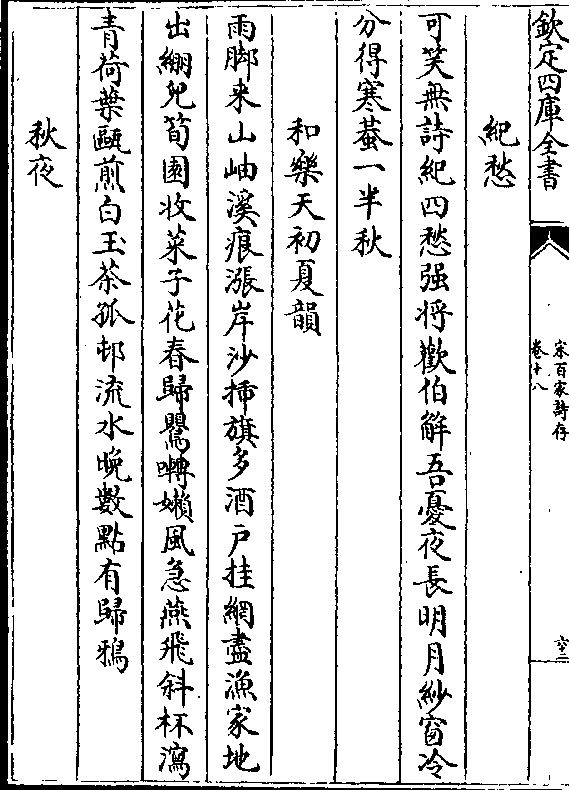 欽定四庫全書
宋百家詩存
卷十八
六三
紀愁
可笑無詩紀四愁强将歡伯解吾憂夜長明月紗窗冷
分得寒蛩一半秋
和樂天初夏韻
雨脚来山岫溪痕漲岸沙揷旗多酒戸挂網盡漁家地
出繃兒筍園收菜子花春歸鸎囀嬾風急燕飛斜杯瀉
青荷葉甌煎白玉茶孤邨流水晚數點有歸鴉
秋夜